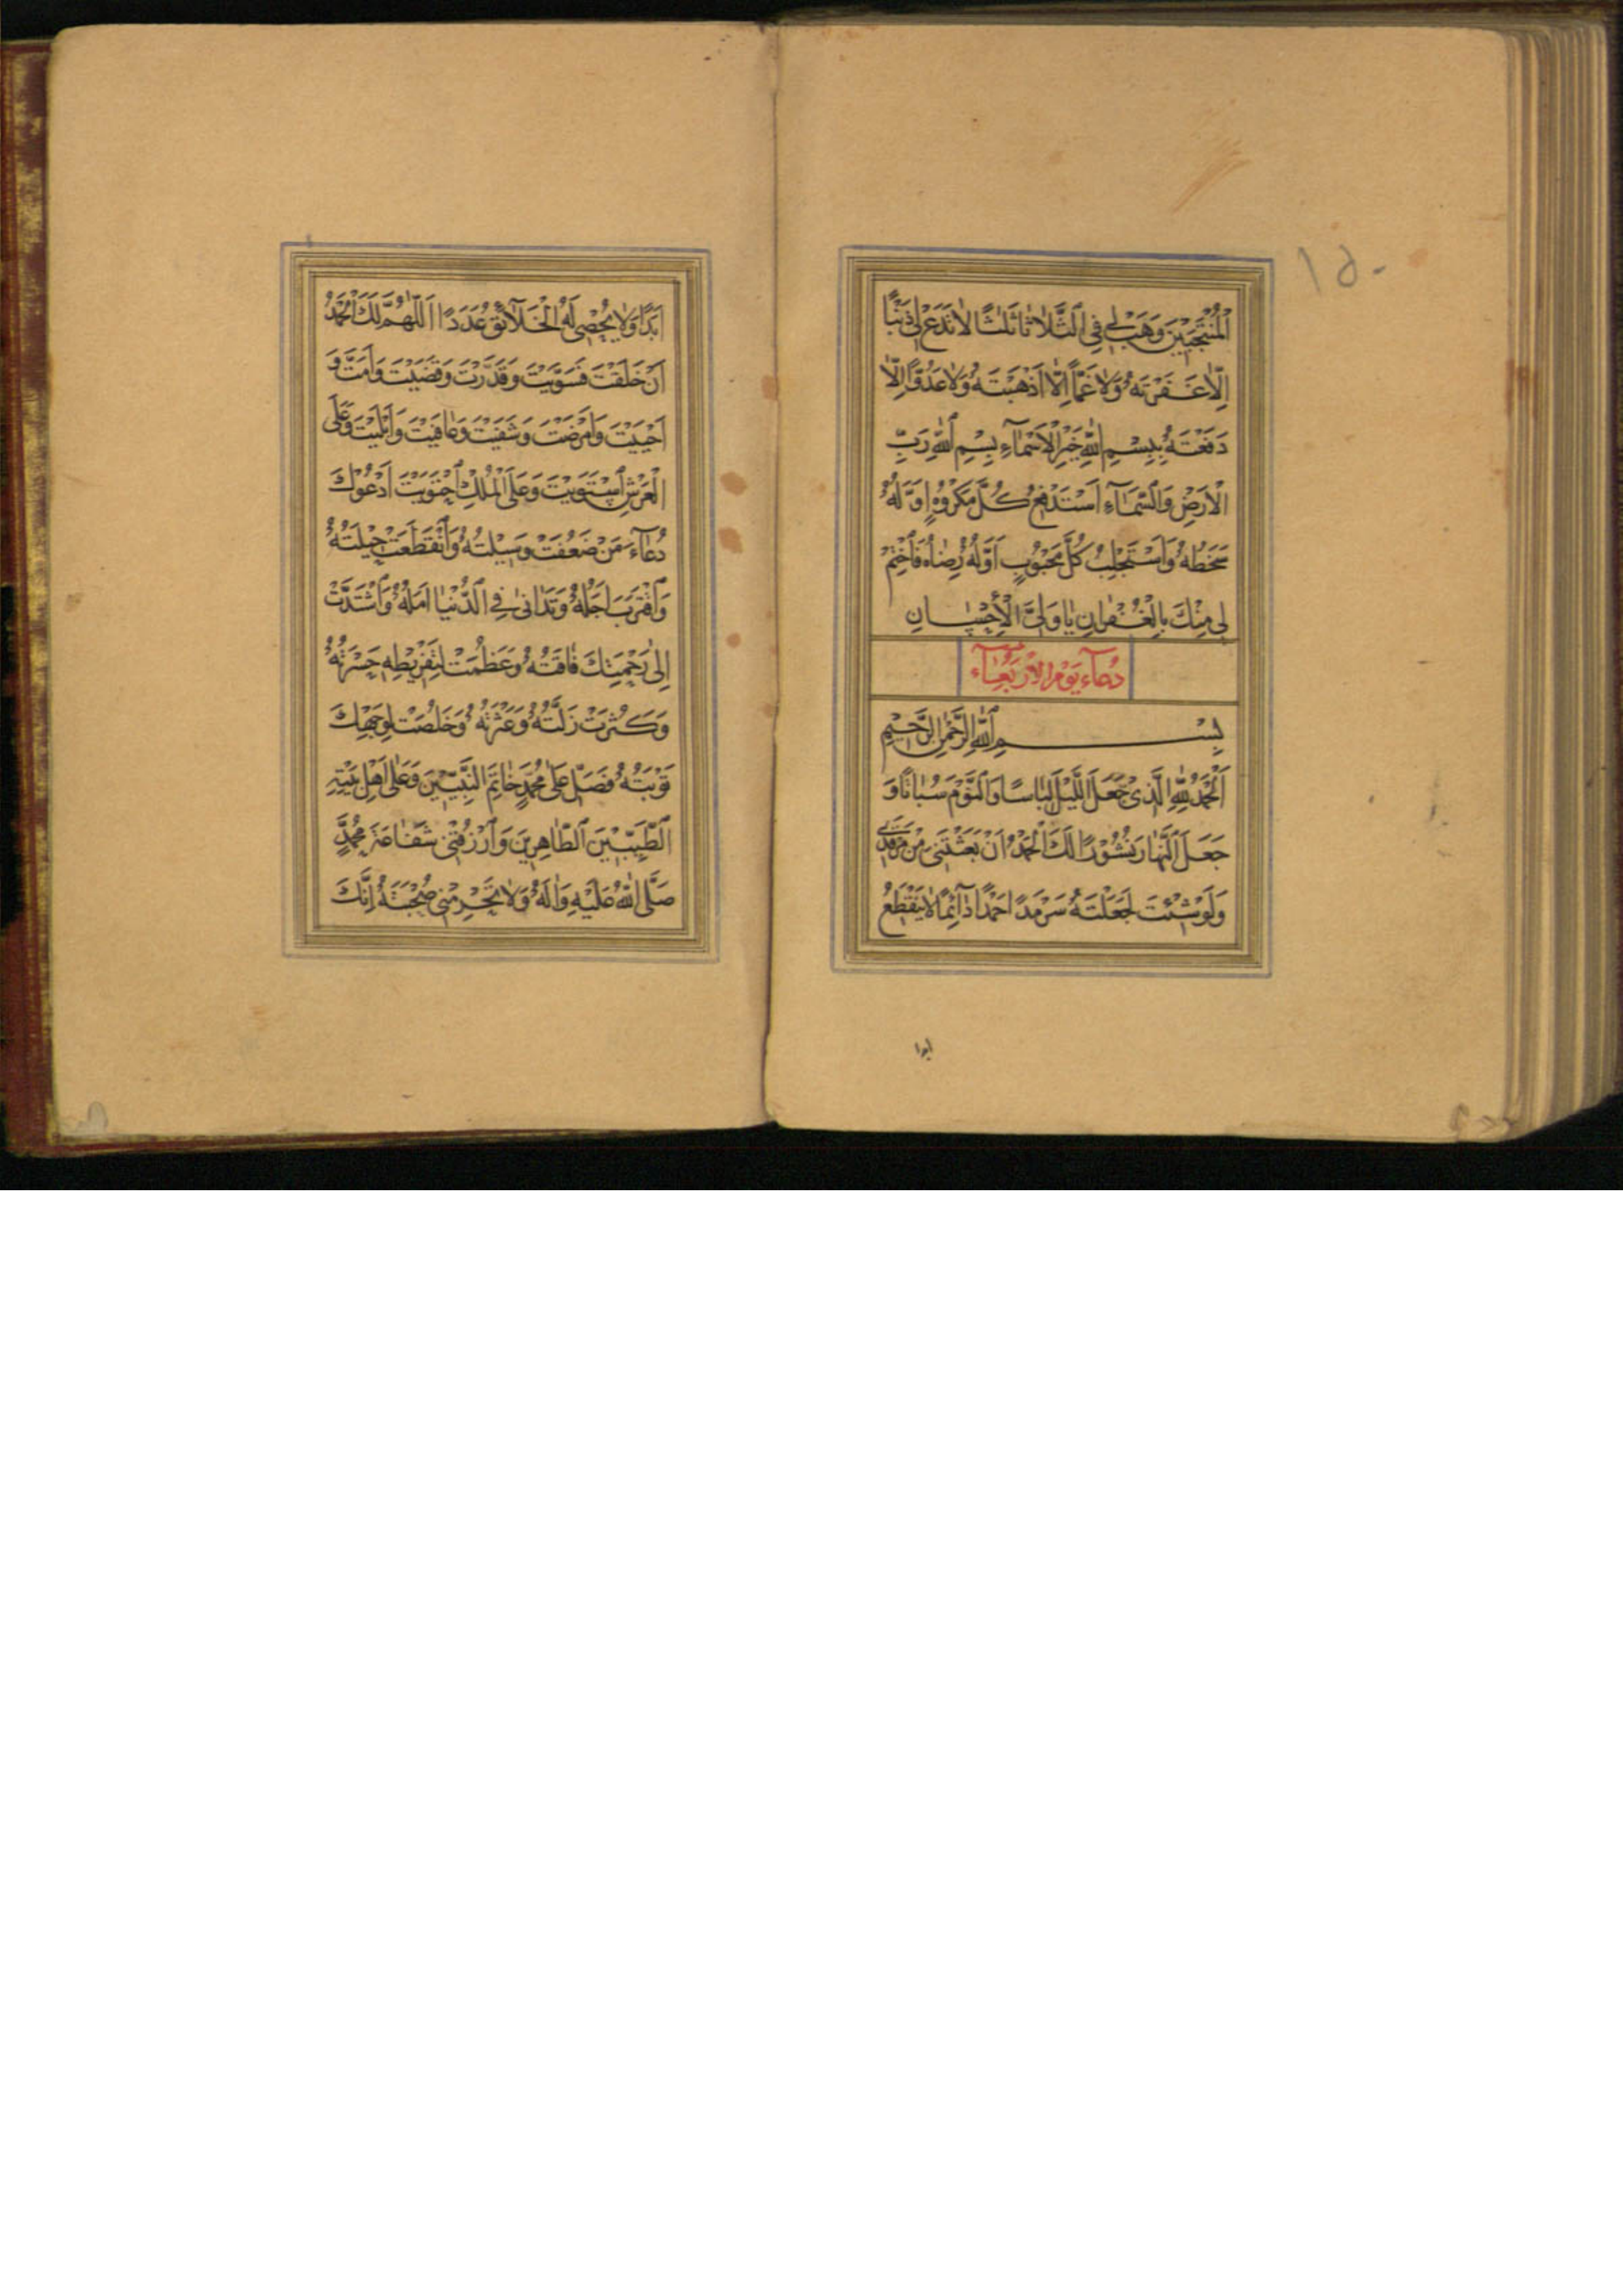 ١٥٠
اَلْمُنْتَجَبِيْنَ وَهَبْ لِي فِي الثَّلَاثَا ثَلٰثًا لَاتَدَعْ لِي ذَنْبًا
اِلَّا غَفَرْتَهُ وَلَا غَمًّا اِلَّا اَذْهَبْتَهُ وَلَا عَدُوًّا اِلَّا
دَفَعْتَهُ بِبِسْمِ اللّٰهِ خَيْرِ الْاَسْمَآءِ بِسْمِ اللّٰهِ رَبِّ
الْاَرْضِ وَالسَّمَآءِ اَسْتَدْفِعُ كُلَّ مَكْرُوْهٍ اَوَّلُهُ
سَخَطُهُ وَاَسْتَجْلِبُ كُلَّ مَحْبُوْبٍ اَوَّلُهُ رِضَاهُ فَاخْتِمْ
لِي مِنْكَ بِالْغُفْرٰانِ يٰا وَلِيَّ الْاِحْسٰانِ
دُعٰاءِ يَوْمِ الْاَرْبَعٰآءِ
بِسْمِ اللّٰهِ الرَّحْمٰنِ الرَّحِيْمِ
اَلْحَمْدُ لِلّٰهِ الَّذِيْ جَعَلَ اللَّيْلَ لِبَاسًا وَالنَّوْمَ سُبٰاتًا وَ
جَعَلَ النَّهٰارَ نُشُوْرًا لَكَ الْحَمْدُ اَنْ بَعَثْتَنِيْ مِنْ مَرْقَدِي
وَلَوْ شِئْتَ لَجَعَلْتَهُ سَرْمَدًا حَمْدًا دٰآئِمًا لٰا يَنْقَطِعُ
ابدا
اَبَدًا وَلٰا يُحْصِي لَهُ الْخَلَآئِقُ عَدَدًا اَللّٰهُمَّ لَكَ الْحَمْدُ
اَنْ خَلَقْتَ فَسَوَّيْتَ وَقَدَّرْتَ وَقَضَيْتَ وَاَمَتَّ وَ
اَحْيَيْتَ وَاَمْرَضْتَ وَشَفَيْتَ وَعَافَيْتَ وَاَبْلَيْتَ وَعَلَى
الْعَرْشِ اسْتَوَيْتَ وَعَلَى الْمُلْكِ احْتَوَيْتَ اَدْعُوْكَ
دُعٰآءَ مَنْ ضَعُفَتْ وَسِيْلَتُهُ وَانْقَطَعَتْ حِيْلَتُهُ
وَاقْتَرَبَ اَجَلُهُ وَتَدٰانٰى فِي الدُّنْيٰا اَمَلُهُ وَاشْتَدَّتْ
اِلٰى رَحْمَتِكَ فٰاقَتُهُ وَعَظُمَتْ لِتَفْرِيْطِهِ حَسْرَتُهُ
وَكَثُرَتْ زَلَّتُهُ وَعَثْرَتُهُ وَخَلُصَتْ لِوَجْهِكَ
تَوْبَتُهُ فَصَلِّ عَلٰى مُحَمَّدٍ خٰاتِمَ النَّبِيِّيْنَ وَعَلٰى اَهْلِ بَيْتِهِ
الطَّيِّبِيْنَ الطّٰاهِرِيْنَ وَارْزُقْنِيْ شَفٰاعَةَ مُحَمَّدٍ
صَلَّى اللّٰهُ عَلَيْهِ وَاٰلِهِ وَلٰا تَحْرِمْنِيْ صُحْبَتَهُ اِنَّكَ